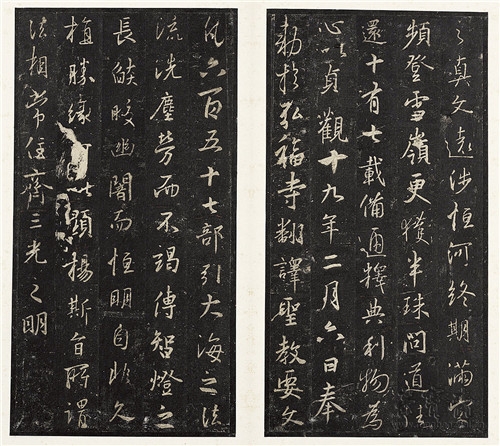 之真文遠涉恒河終期滿字
頻登雪嶺更獲半珠問道法
還十有七載備通釋典利物為
心以貞觀十九年二月六日奉
勅於弘福寺翻譯聖教要文
凡六百五十七部引大海之法
流洗塵勞而不竭傳智燈之
長焰皎幽闇而恒明自非久
植勝緣何以顯揚斯旨所謂
法相常住齊三光之明